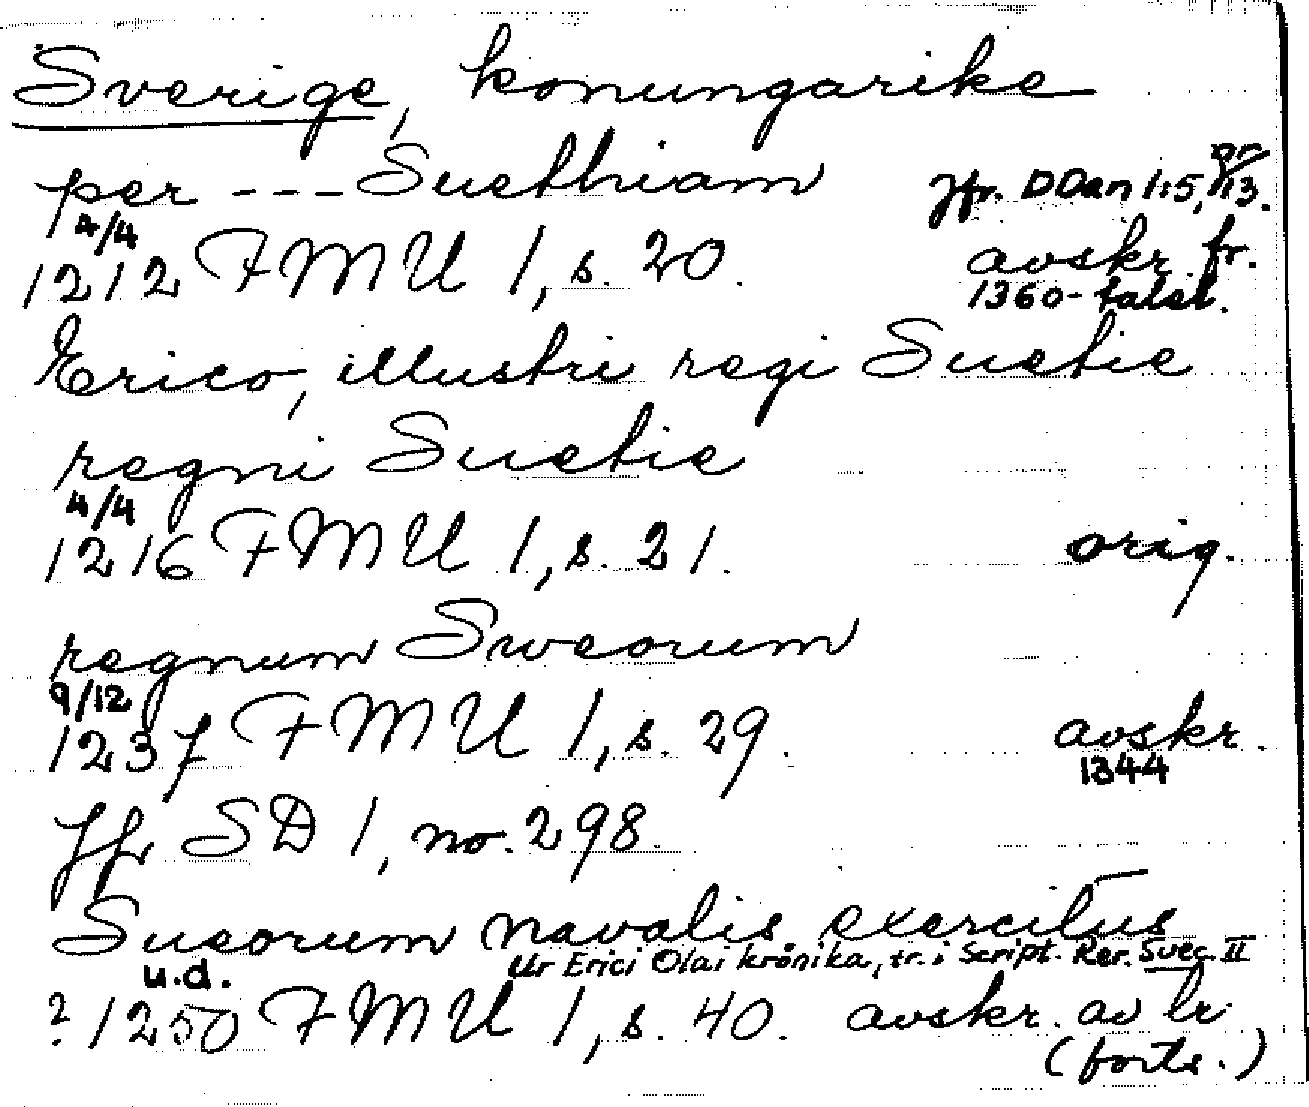 Sverige, konungarike
per --- Suethiam
Jfr. DDan 1:5, nr 13.
4/4
1212 FMU 1, s. 20. avskr. fr.
1360-talet.
Erico, illustri regi Suetie
regni Suetie
4/4
1216 FMU 1, s. 21. orig.
regnum Sweorum
9/12
1237 FMU 1, s. 29. avskr.
1344
Jfr SD 1, no. 298.
Sueorum navalis exercitus
u.d. Ur Erici Olai krönika, tr. i Script. Rer. Svec. II
? 1250 FMU 1, s. 40. avskr. av br
(forts.)